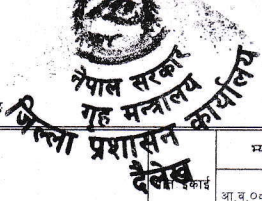 नेपाल सरकार
गृह मन्त्रालय
जिल्ला प्रशासन कार्यालय
दैलेख
इकाई
आ.व.